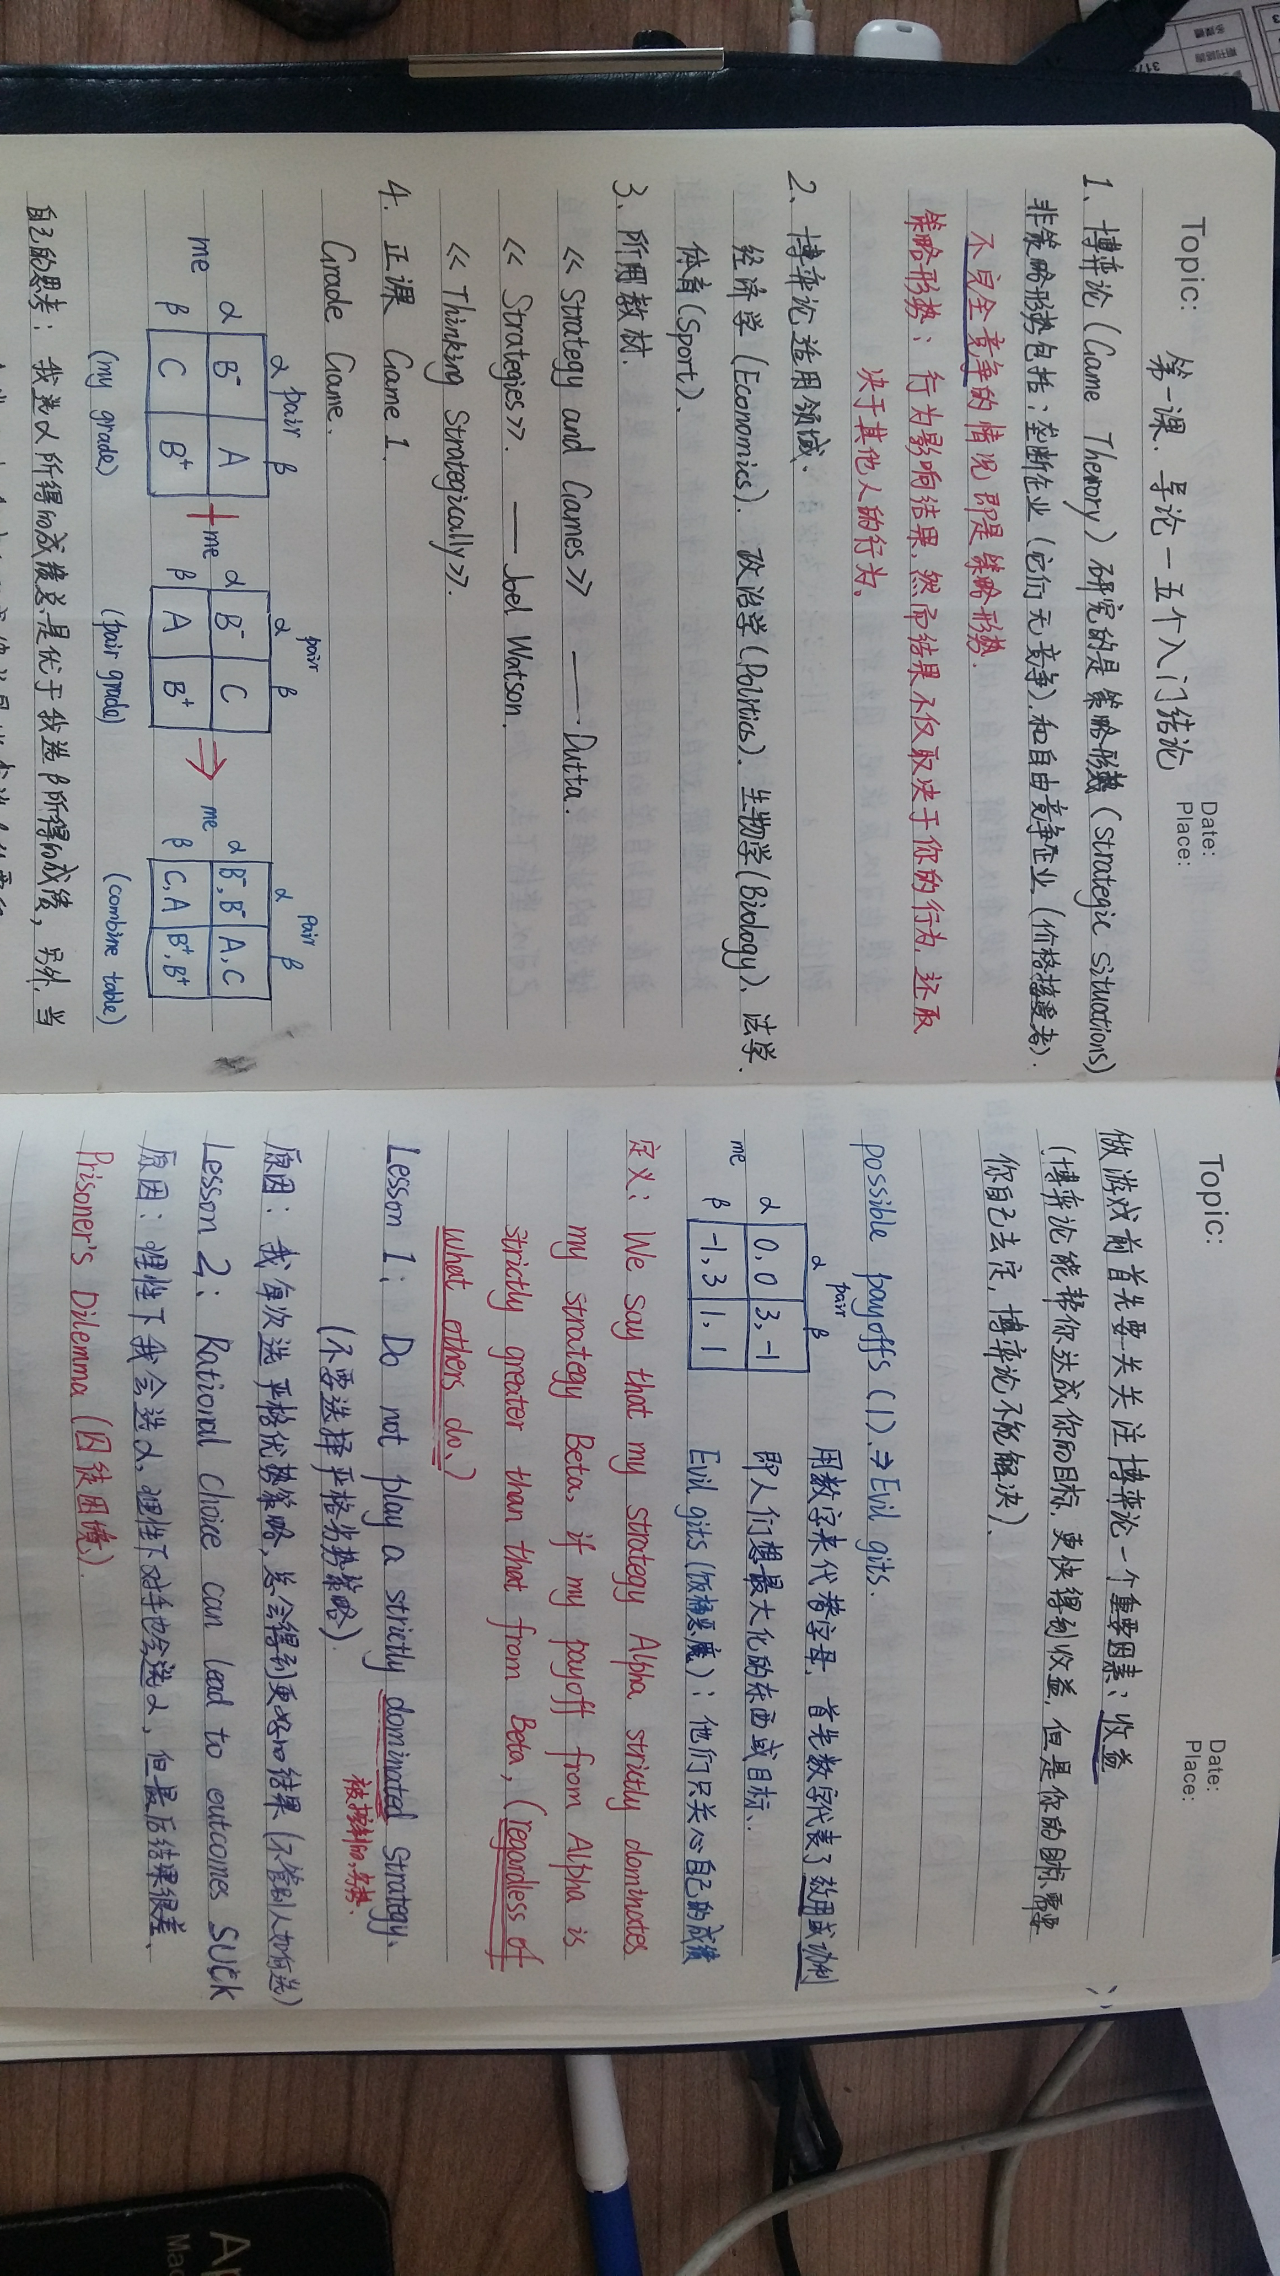 Topic:
Date:
Place:
第一课、导论－五个入门结论
1、博弈论(Game Theory)研究的是策略形势(strategic situations)
非策略形势包括：垄断企业(它们无竞争).和自由竞争企业(价格接受者).
不完全竞争的情况即是策略形势.
策略形势：行为影响结果,然而结果不仅取决于你的行为,还取
决于其他人的行为。
2、博弈论适用领域、
经济学(Economics).政治学(Politics).生物学(Biology)、法学.
体育(sport)、
3、所用教材.
<<Strategy and Games>> —— Dutta.
<<Strategies>>. —— Joel Watson.
<<Thinking Strategically>>.
4.正课 Game 1.
Grade Game.
pair
α β
me
α B⁻ A
β C B⁺
(my grade)
+
pair
α β
me
α B⁻ C
β A B⁺
(pair grade)
⇒
pair
α β
me
α B⁻,B⁻ A,C
β C,A B⁺,B⁺
(combine table)
自己的思考：我选α所得的成绩总是优于我选β所得的成绩,另外,当
Topic:
Date:
Place:
做游戏前首先要关关注博弈论一个重要因素：收益
(博弈论能帮你达成你的目标,更快得到收益,但是你的目标需要
你自己去定,博弈论不能解决).
possible payoffs (1).⇒Evil gits.
pair
α β
me
α 0,0 3,-1
β -1,3 1,1
用数字来代替字母,首先数字代表了效用或功利
即人们想最大化的东西或目标、.
Evil gits(饭桶恶魔)：他们只关心自己的成绩
定义：We say that my strategy Alpha strictly dominates
my strategy Beta, if my payoff from Alpha is
strictly greater than that from Beta, (regardless of
what others do、)
Lesson 1: Do not play a strictly dominated Strategy、
(不要选择严格劣势策略).
被控制的,劣势.
原因：我每次选严格优势策略,总会得到更好的结果(不管别人如何选)
Lesson 2: Rational Choice can lead to outcomes SUCK
原因：理性下我会选α,理性下对手也会选α,但最后结果很差、
Prisoner's Dilemma (囚徒困境).